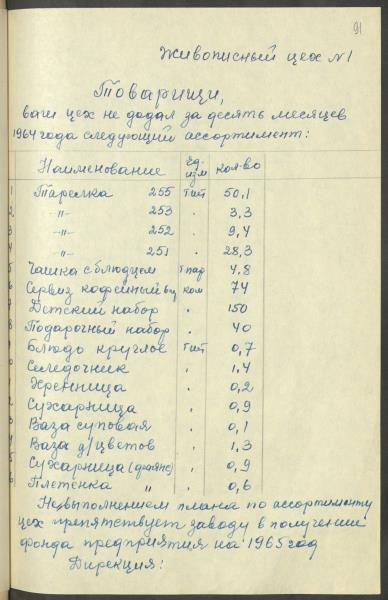 91
Живописный цех №1
Товарищи,
ваш цех не додал за десять месяцев
1964 года следующий ассортимент:
Наименование Ед. изм кол-во
1 Тарелка 255 тшт 50,1
2 -"- 253 . 3,3
3 -"- 252 . 9,4
4 -"- 251 . 28,3
5 Чашка с блюдцем тпар 4,8
6 Сервиз кофейный вц ком 74
7 Детский набор . 150
8 Подарочный набор . 40
9 Блюдо круглое тшт 0,7
0 Селедочник . 1,4
1 Хренница . 0,2
2 Сухарница . 0,9
3 Ваза суповая . 0,1
4 Ваза д/цветов . 1,3
5 Сухарница (фаянс) . 0,9
6 Плетенка " . 0,6
Невыполнением плана по ассортименту
цех препятствует заводу в получении
фонда предприятия на 1965 год
Дирекция: